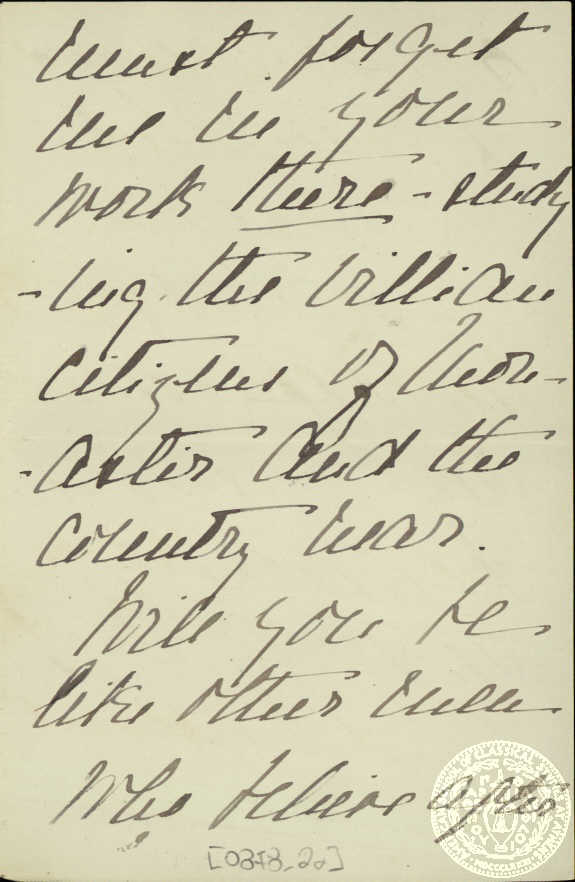 must forget
me in your
work there - study
-ing the villian
citizens of Mon-
-astir and the
country near.
Will you be
like other men
who believe after
[0378_22]